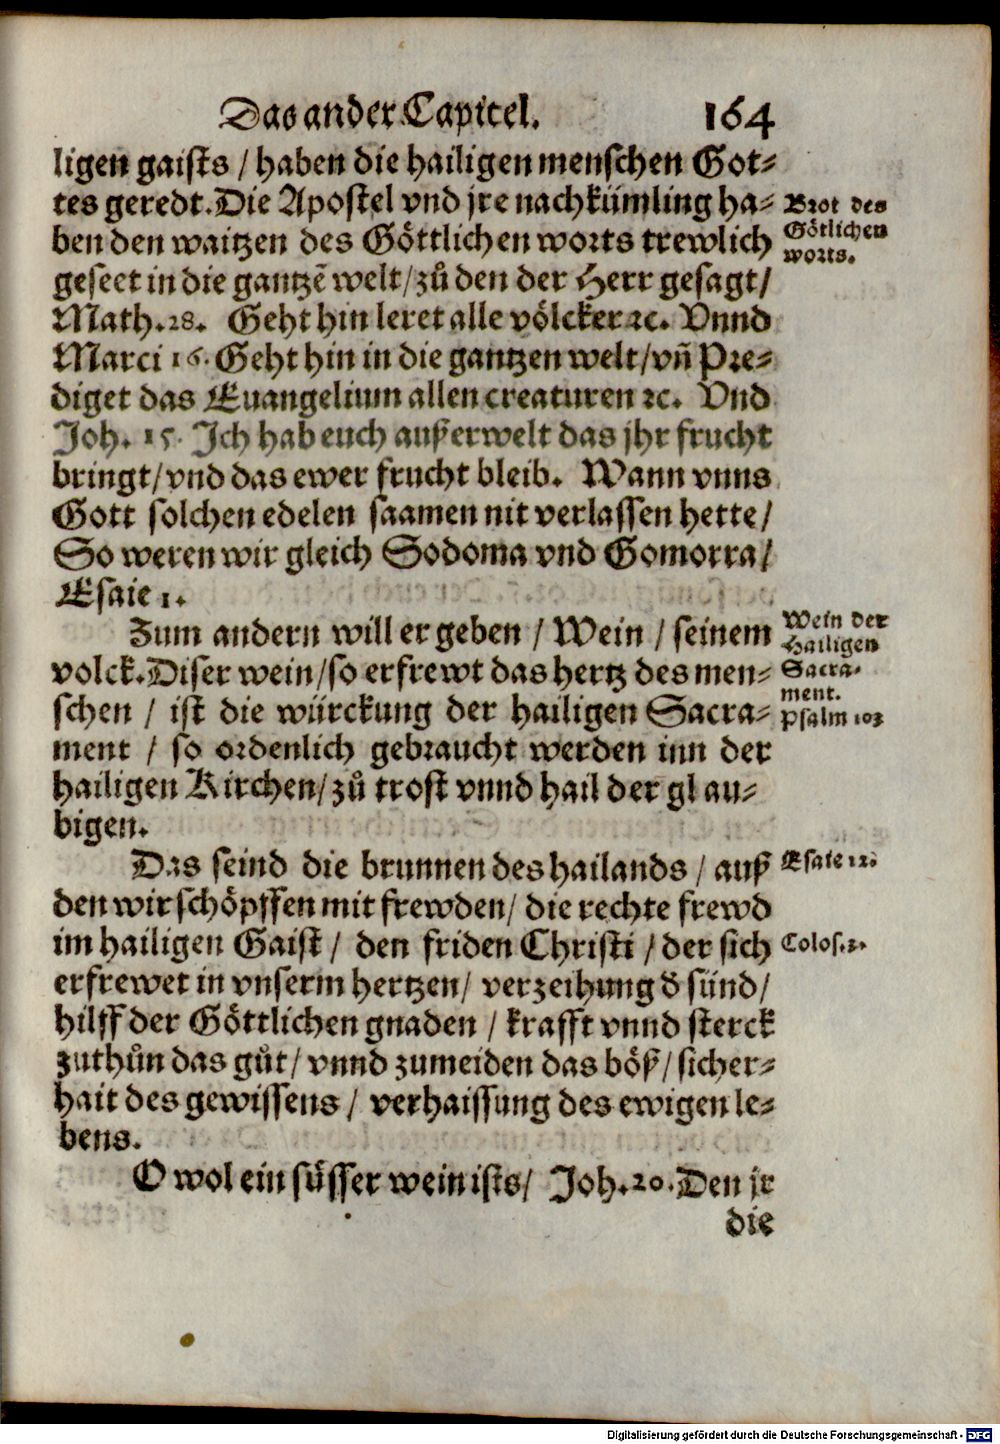 Das ander Capitel. 164
ligen gaists / haben die hailigen menschen Got-
tes geredt. Die Apostel vnd jre nachkümling ha-
ben den waitzen des Göttlichen worts trewlich
geseet in die gantzē welt / zů den der Herr gesagt /
Math. 28. Geht hin leret alle völcker ꝛc. Vnnd
Marci 16. Geht hin in die gantzen welt / vñ Pre-
diget das Euangelium allen creaturen ꝛc. Vnd
Joh. 15. Ich hab euch außerwelt das jhr frucht
bringt / vnd das ewer frucht bleib. Wann vnns
Gott solchen edelen saamen nit verlassen hette /
So weren wir gleich Sodoma vnd Gomorra /
Esaie 1.
Brot des
Götlichen
worts.
Zum andern will er geben / Wein / seinem
volck. Diser wein / so erfrewt das hertz des men-
schen / ist die würckung der hailigen Sacra-
ment / so ordenlich gebraucht werden inn der
hailigen Kirchen / zů trost vnnd hail der glau-
bigen.
Wein der
Hailigen
Sacra-
ment.
Psalm 103
Das seind die brunnen des hailands / auß
den wir schöpffen mit frewden / die rechte frewd
im hailigen Gaist / den friden Christi / der sich
erfrewet in vnserm hertzen / verzeihung d̕ sünd /
hilff der Göttlichen gnaden / krafft vnnd sterck
zuthůn das gůt / vnnd zumeiden das böß / sicher-
hait des gewissens / verhaissung des ewigen le-
bens.
Esaie 12.
Colos. 3.
O wol ein süsser wein ists / Joh. 20. Den jr
die
Digitalisierung gefördert durch die Deutsche Forschungsgemeinschaft - DFG